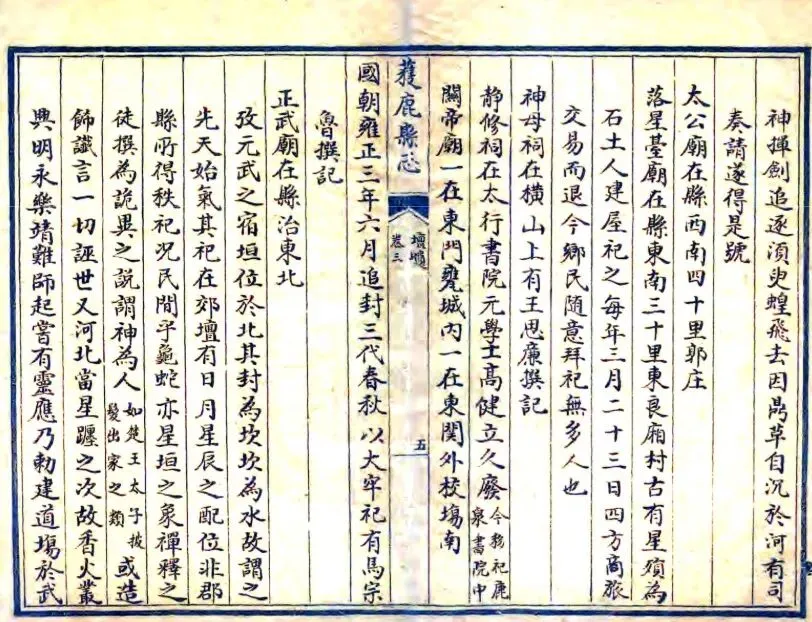 神揮劍追逐湏臾蝗飛去因爲草自沉於河有司
奏請遂得是號
太公廟在縣西南四十里郭庄
落星臺廟在縣東南三十里東良廂村古有星殞為
石土人建屋祀之每年三月二十三日四方商旅
交易而退今鄉民随意拜祀無多人也
神母祠在横山上有王思廉撰記
静修祠在太行書院元學士高健立久廢今務祀鹿泉書院中
關帝廟一在東門甕城内一在東関外校塲南
獲鹿縣志
壇壝
卷三
五
國朝雍正三年六月追封三代春秋以大牢祀有馬宗
魯撰記
正武廟在縣治東北
攷元武之宿垣位於北其封為坎坎為水故謂之
先天始氣其祀在郊壇有日月星辰之配位非郡
縣所得秩祀况民間乎龜蛇亦星垣之象禪釋之
徒撰為詭異之説謂神為人如楚王太子披髮出家之類或造
飾讖言一切誣世又河北當星躔之次故香火叢
典明永樂靖難師起嘗有靈應乃勅建道塲於武